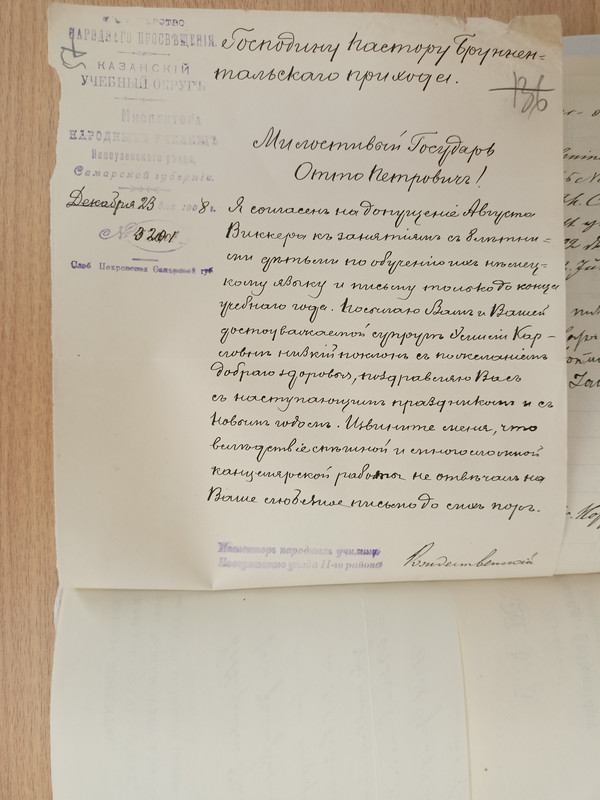 МИНИСТЕРСТВО
НАРОДНАГО ПРОСВѢЩЕНІЯ.
КАЗАНСКІЙ
УЧЕБНЫЙ ОКРУГЪ
Инспекторъ
НАРОДНЫХЪ УЧИЛИЩЪ
Новоузенскаго уѣзда,
Самарской губерніи.
Декабря 23 дня 1908 г.
№ 3201
Слоб. Покровская Самарской губ.
Господину пастору Бруннен-
тальскаго прихода.
136
Милостивый Государь
Отто Петровичъ!
Я согласенъ на допущеніе Августа
Виккеръ къ занятіямъ съ 8 лѣтни-
ми дѣтьми по обученію ихъ нѣмец-
кому языку и письму только до конца
учебнаго года. Посылаю Вамъ и Вашей
достоуважаемой супругѣ Эмиліи Кар-
ловнѣ низкій поклонъ съ пожеланіемъ
добраго здоровья, поздравляю Васъ
съ наступающимъ праздникомъ и съ
Новымъ годомъ. Извините меня, что
вслѣдствіе спѣшной и многосложной
канцелярской работы не отвѣчалъ на
Ваше любезное письмо до сихъ поръ.
Инспекторъ народныхъ училищъ
Новоузенскаго уѣзда II-го района
Рождественскій